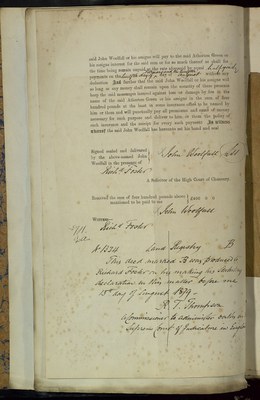 said John Woolfall or his assigns will pay to the said Atkinson Green or
his assigns interest for the said sum or for so much thereof as shall for
the time being remain unpaid at the rate aforesaid by equal
payments on the twelfth day of
deduction And further that the said John Woolfall or his assigns will
so long as any money shall remain upon the security of these presents
keep the said messuages insured against loss or damage by fire in the
name of the said Atkinson Green or his assigns in the sum of four
hundred pounds at the least in some insurance office to be named by
him or them and will punctually pay all premiums and sums of money
necessary for such purpose and deliver to him or them the policy of
such insurance and the receipt for every such payment In witness
whereof the said John Woolfall has hereunto set his hand and seal
Signed sealed and delivered
by the above-named John
Woolfall in the presence of
John Woolfall
Richd Foster
A Solicitor of the High Court of Chancery
Received the sum of four hundred pounds above
mentioned to be paid to me
£400
John Woolfall
Witness
Richd Foster
Land Registry B
This deed marked B was produced to
Richard Foster on his making his statutory
declaration in this matter before me
15th day of August 1879
T. Thompson
A Commissioner to administer oaths in
Supreme Court of Judicature in England